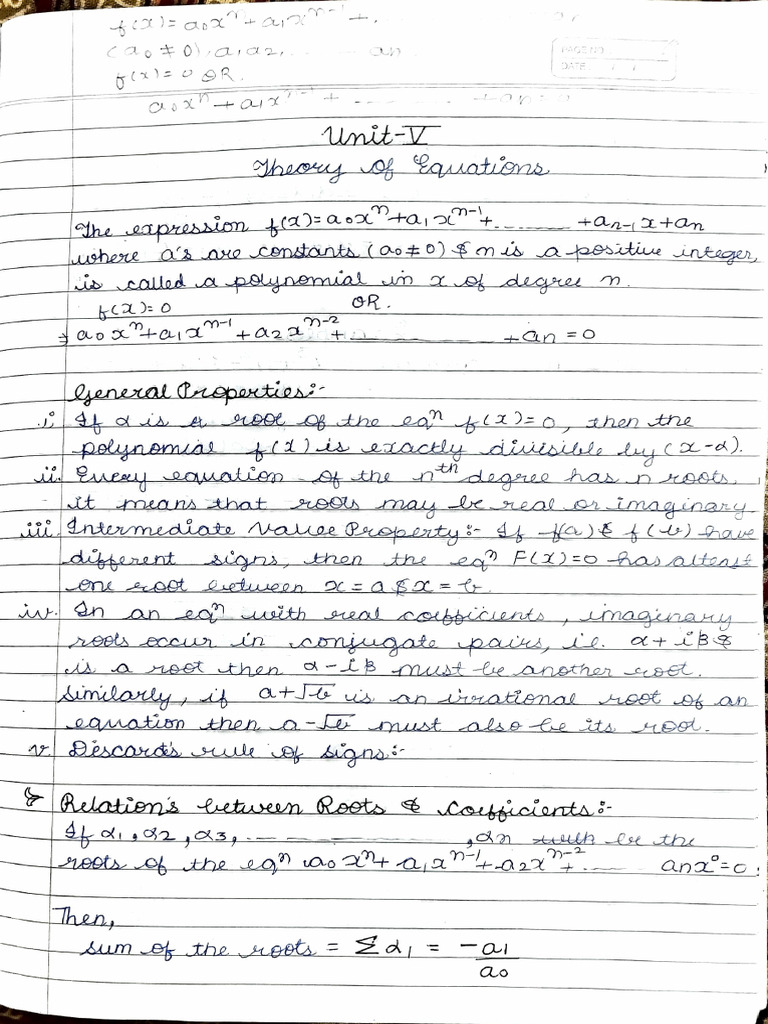 f(x) = a₀xⁿ + a₁xⁿ⁻¹ + .
(a₀ ≠ 0), a₁a₂, ...... an
f(x) = 0 OR.
a₀xⁿ + a₁xⁿ⁻¹ + ------- + an = 0
PAGE NO.
DATE / /
Unit-V
Theory of Equations
The expression f(x) = a₀xⁿ + a₁xⁿ⁻¹ + ........ + aₙ₋₁x + an
where a's are constants (a₀ ≠ 0) & n is a positive integer,
is called a polynomial in x of degree n.
f(x) = 0 OR.
⇒ a₀xⁿ + a₁xⁿ⁻¹ + a₂xⁿ⁻² + ---------- + an = 0
General Properties:-
i, If α is a root of the eqⁿ f(x) = 0, then the
polynomial f(x) is exactly divisible by (x-α).
ii. Every equation of the nᵗʰ degree has n roots.
it means that roots may be real or imaginary
iii. Intermediate Value Property:- If f(a) & f(b) have
different signs, then the eqⁿ F(x) = 0 has
one root between x = a & x = b.
iv. In an eqⁿ with real coefficients, imaginary
roots occur in conjugate pairs, i.e. α + iβ &
is a root then α - iβ must be another root.
Similarly, if a + √b is an irrational root of an
equation then a - √b must also be its root.
v. Discard's rule of signs:-
Relation's between Roots & Coefficients:-
If α₁, α₂, α₃, ------------, αn be the
roots of the eqⁿ a₀xⁿ + a₁xⁿ⁻¹ + a₂xⁿ⁻² + ...... anx⁰ = 0.
Then,
sum of the roots = Σα₁ = -a₁/a₀